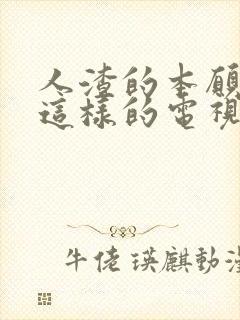 人渣的本願
這樣的電視
牛佬瑛麒動漫